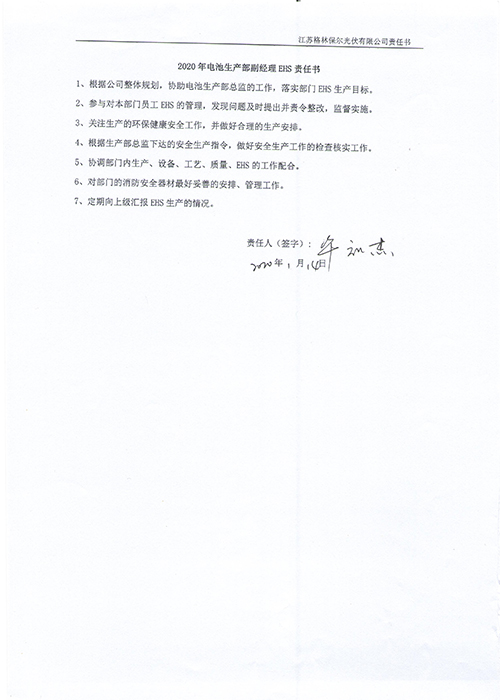 江苏格林保尔光伏有限公司责任书
2020年电池生产部副经理EHS责任书
1、根据公司整体规划，协助电池生产部总监的工作，落实部门EHS生产目标。
2、参与对本部门员工EHS的管理，发现问题及时提出并责令整改，监督实施。
3、关注生产的环保健康安全工作，并做好合理的生产安排。
4、根据生产部总监下达的安全生产指令，做好安全生产工作的检查核实工作。
5、协调部门内生产、设备、工艺、质量、EHS的工作配合。
6、对部门的消防安全器材最好妥善的安排、管理工作。
7、定期向上级汇报EHS生产的情况。
责任人（签字）：
2020年1月14日